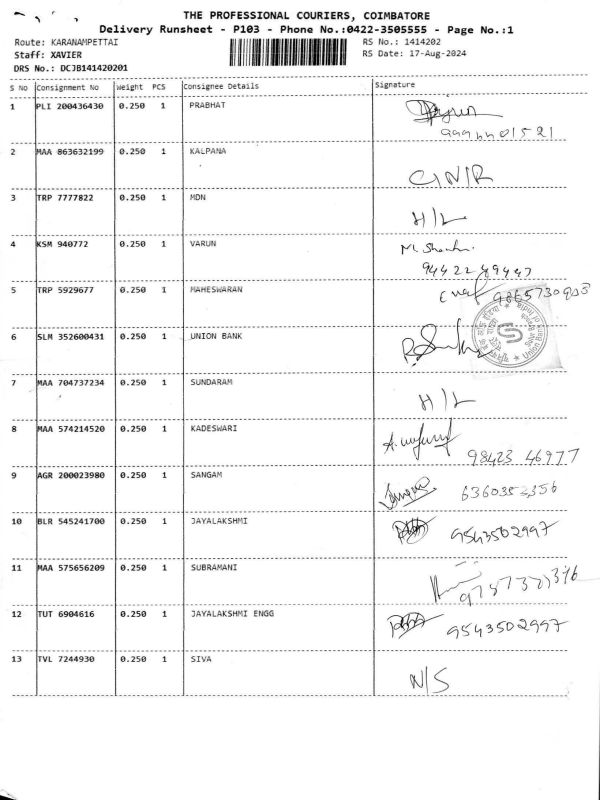 THE PROFESSIONAL COURIERS, COIMBATORE
Delivery Runsheet - P103 - Phone No.:0422-3505555 - Page No.:1
Route: KARANAMPETTAI RS No.: 1414202
Staff: XAVIER RS Date: 17-Aug-2024
DRS No.: DCJB141420201
S No Consignment No Weight PCS Consignee Details Signature
1 PLI 200436430 0.250 1 PRABHAT
2 MAA 863632199 0.250 1 KALPANA C/N/R
3 TRP 7777822 0.250 1 MDN H/L
4 KSM 940772 0.250 1 VARUN
5 TRP 5929677 0.250 1 MAHESWARAN
6 SLM 352600431 0.250 1 UNION BANK
7 MAA 704737234 0.250 1 SUNDARAM H/L
8 MAA 574214520 0.250 1 KADESWARI
98423 46977
9 AGR 200023980 0.250 1 SANGAM
10 BLR 545241700 0.250 1 JAYALAKSHMI 9543502997
11 MAA 575656209 0.250 1 SUBRAMANI
12 TUT 6904616 0.250 1 JAYALAKSHMI ENGG 9543502997
13 TVL 7244930 0.250 1 SIVA N/S